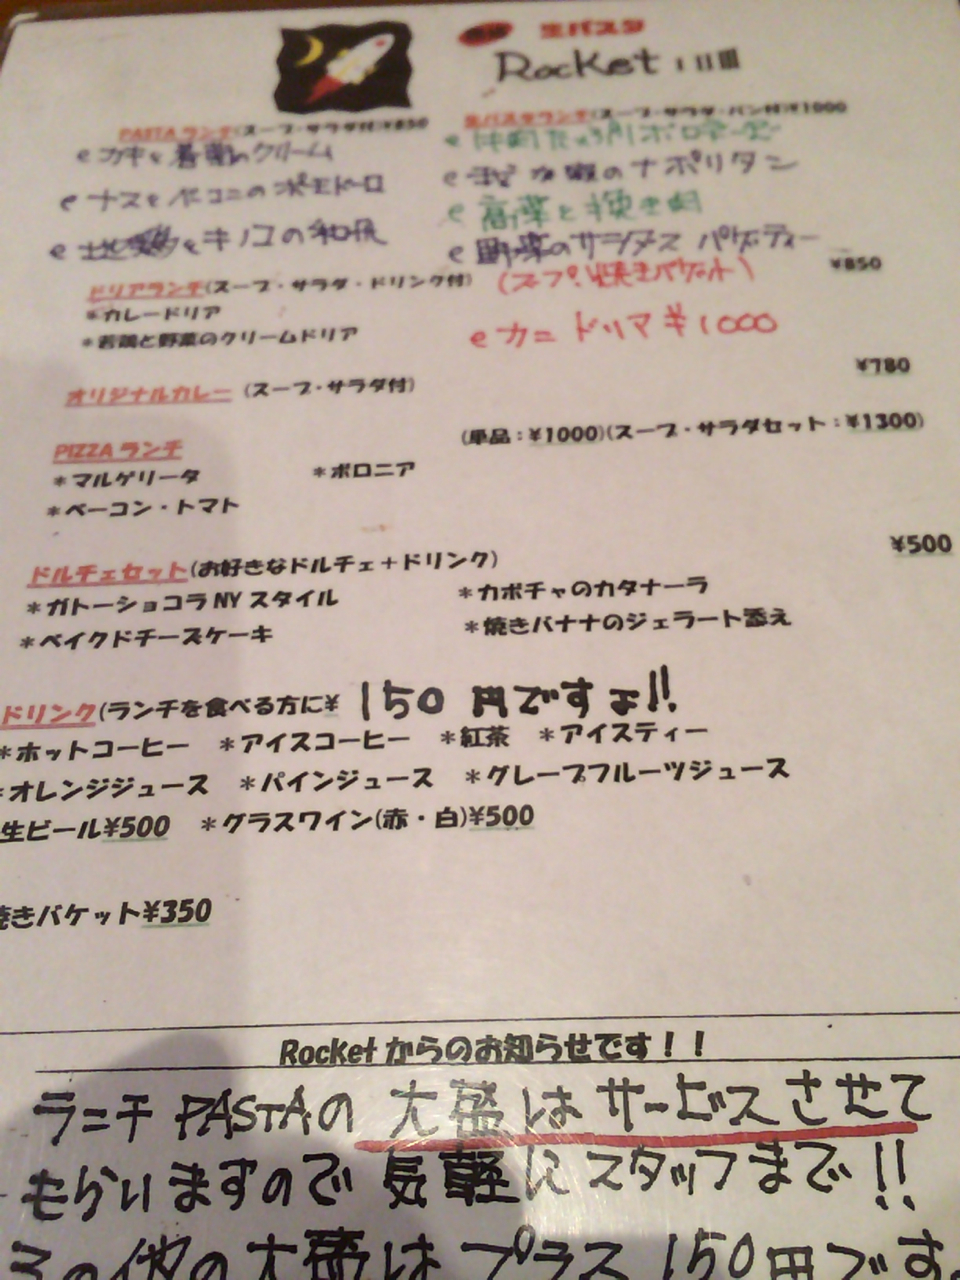 生パスタ
Rocket
PASTA ランチ(スープ・サラダ付)¥850
生パスタランチ(スープ・サラダ・パン付)¥1000
カキと のクリーム
ナスと のポモドーロ
地鶏とキノコの和風
のナポリタン
高菜と挽き肉
野菜のサラダスパゲッティー
(スープ・焼きバケット)
ドリアランチ(スープ・サラダ・ドリンク付) ¥850
*カレードリア
*若鶏と野菜のクリームドリア
カニ ドリア ¥1000
オリジナルカレー (スープ・サラダ付) ¥780
PIZZA ランチ (単品:¥1000)(スープ・サラダセット:¥1300)
*マルゲリータ *ボロニア
*ベーコン・トマト
ドルチェセット(お好きなドルチェ+ドリンク) ¥500
*ガトーショコラNYスタイル *カボチャのカタナーラ
*ベイクドチーズケーキ *焼きバナナのジェラート添え
ドリンク(ランチを食べる方に¥ 150円ですよ!!
*ホットコーヒー *アイスコーヒー *紅茶 *アイスティー
*オレンジジュース *パインジュース *グレープフルーツジュース
生ビール¥500 *グラスワイン(赤・白)¥500
焼きバケット¥350
Rocketからのお知らせです!!
ランチPASTAの大盛はサービスさせて
もらいますので気軽にスタッフまで!!
その他の大盛はプラス150円です。